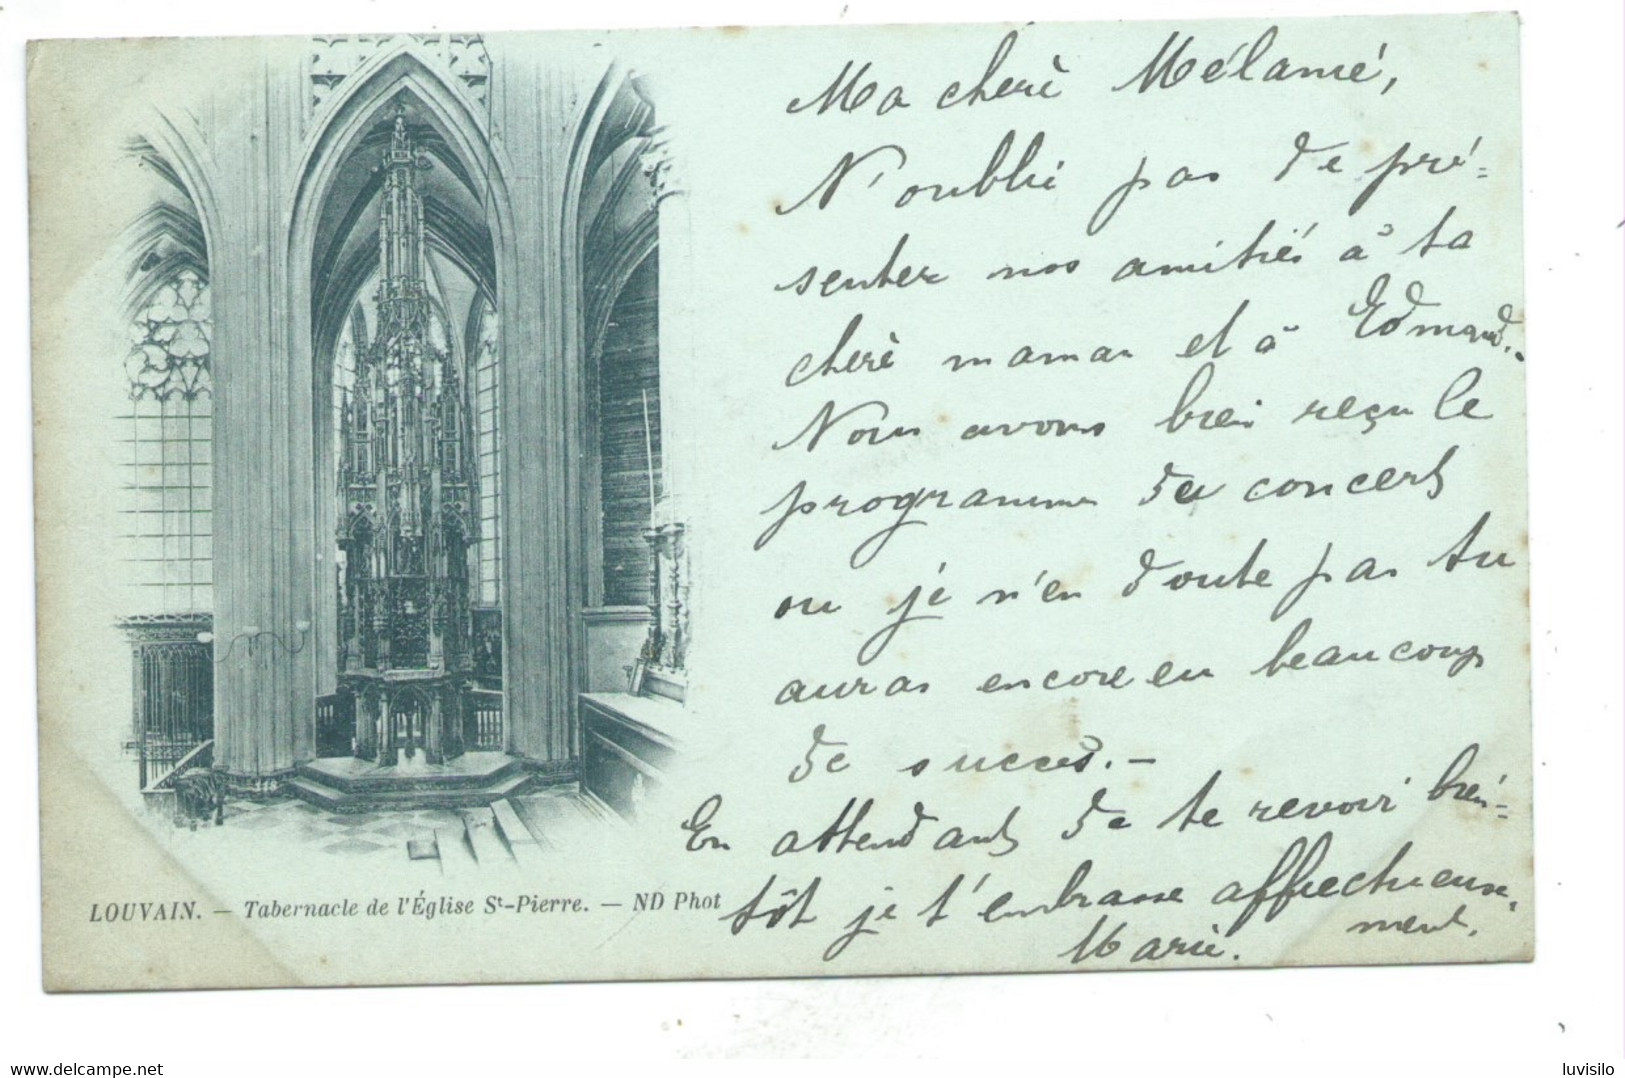 Ma cherè Mélanié,
N'oublié pas de pré-
senter nos amitiés à ta
cherè maman et à Edmond.-
Nous avons bien reçu le
programme du concert
ou je n'en doute pas tu
auras encore eu beaucoup
de succès.-
En attendant de te revoir bién-
tôt je t'embrasse affectueuse-
ment.
Marie.
LOUVAIN. — Tabernacle de l'Église St-Pierre. — ND Phot
www.delcampe.net
luvisilo